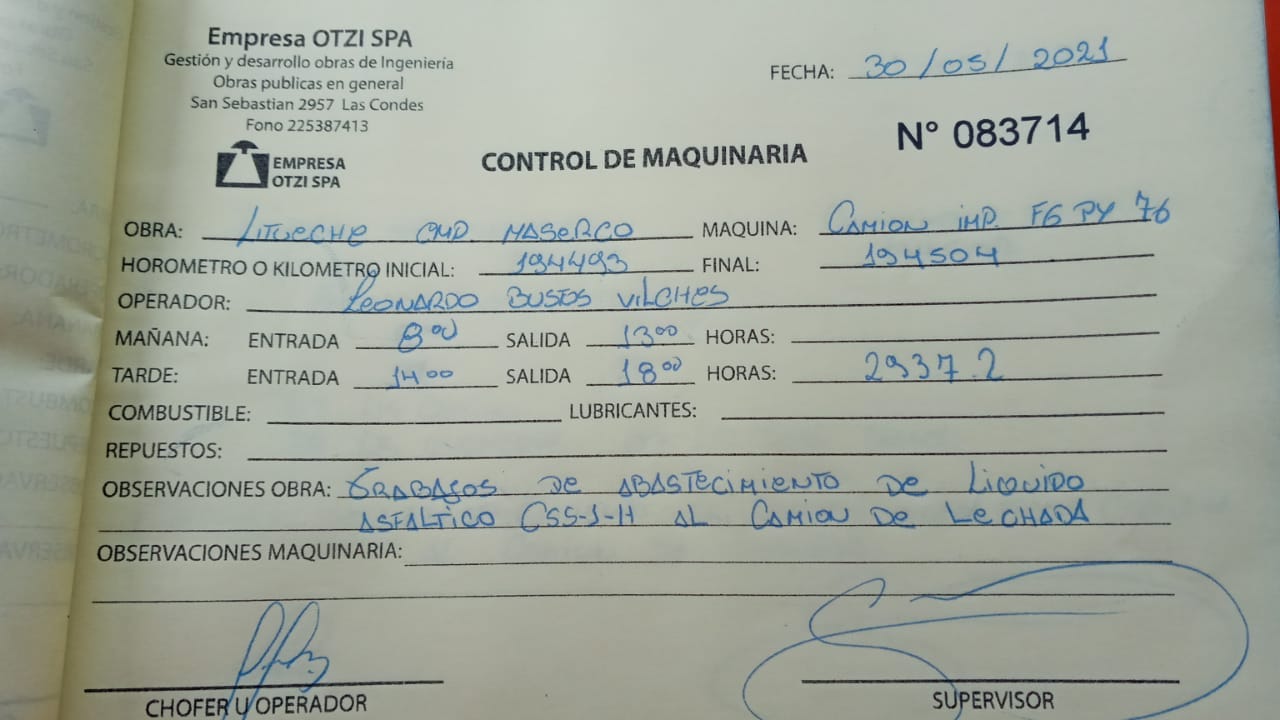 Empresa OTZI SPA
Gestión y desarrollo obras de Ingeniería
Obras publicas en general
San Sebastian 2957 Las Condes
Fono 225387413
EMPRESA
OTZI SPA
FECHA: 30/05/2021
CONTROL DE MAQUINARIA
N° 083714
OBRA: LITUECHE CMP. MASERCO MAQUINA: CAMION IMP. FG PY 76
HOROMETRO O KILOMETRO INICIAL: 194493 FINAL: 194504
OPERADOR: LEONARDO BUSTOS VILCHES
MAÑANA: ENTRADA 8:00 SALIDA 13:00 HORAS:
TARDE: ENTRADA 14:00 SALIDA 18:00 HORAS: 2937.2
COMBUSTIBLE: LUBRICANTES:
REPUESTOS:
OBSERVACIONES OBRA: TRABAJOS DE ABASTECIMIENTO DE LIQUIDO
ASFALTICO CSS-1-H AL CAMION DE LECHADA
OBSERVACIONES MAQUINARIA:
CHOFER U OPERADOR
SUPERVISOR